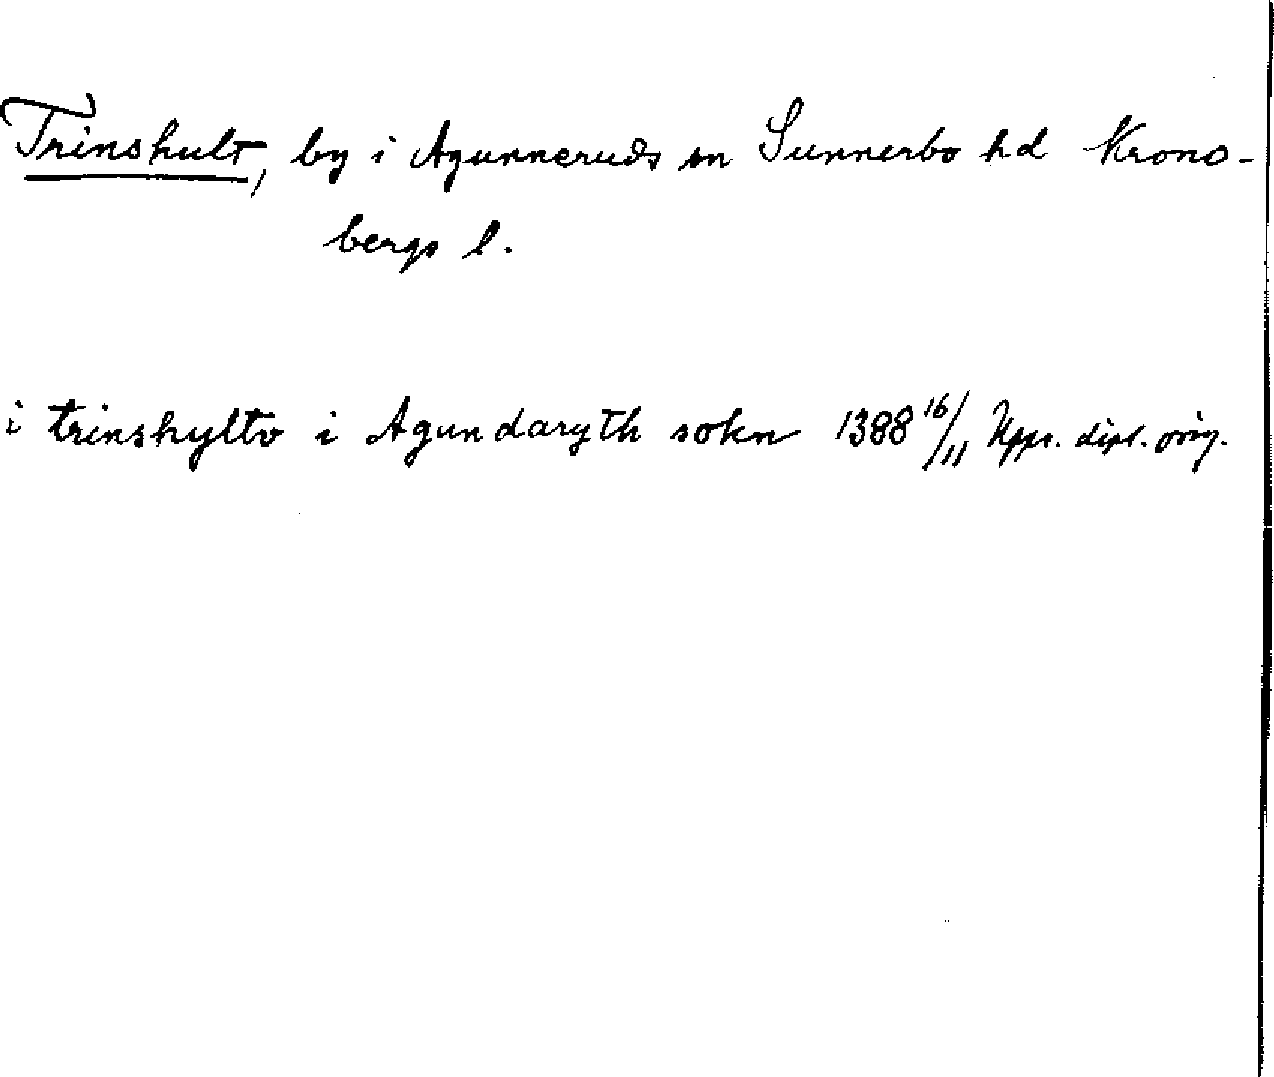 Trinshult, by i Agunneruds sn Sunnerbo hd Krono-
bergs l.
i trinshylto i Agundaryth sokn 1388 16/11 Upps. dipl. orig.